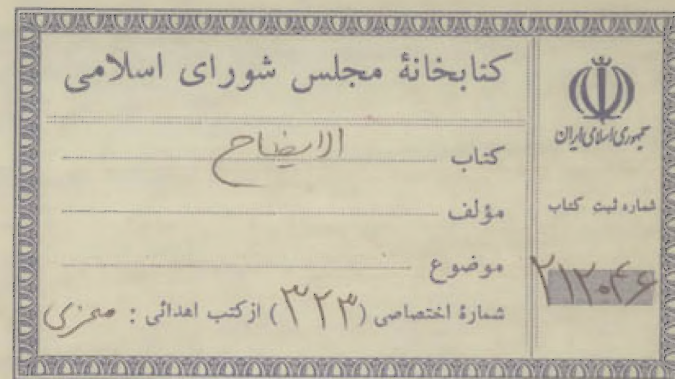 کتابخانهٔ مجلس شورای اسلامی
کتاب الایضاح
مؤلف
موضوع
شمارهٔ اختصاصی (۳۲۳) از کتب اهدائی :
جمهوری اسلامی ایران
شماره ثبت کتاب
۲۱۲۰۴۶